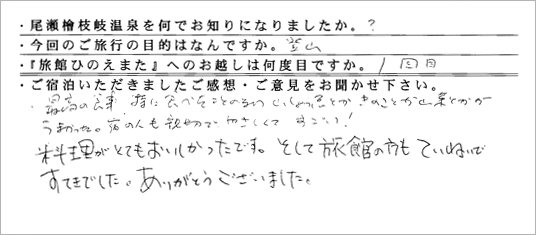 ・尾瀬檜枝岐温泉を何でお知りになりましたか。?
・今回のご旅行の目的はなんですか。登山
・『旅館ひのえまた』へのお越しは何度目ですか。1回目
・ご宿泊いただきましたご感想・ご意見をお聞かせ下さい。
・最高の食事 特に食べたことのない とかきのことか山菜とかが
うまかった。宿の人も親切で やさしくて すごいい!
料理がとてもおいしかったです。そして旅館の方も ていねいで
すてきでした。ありがとうございました。